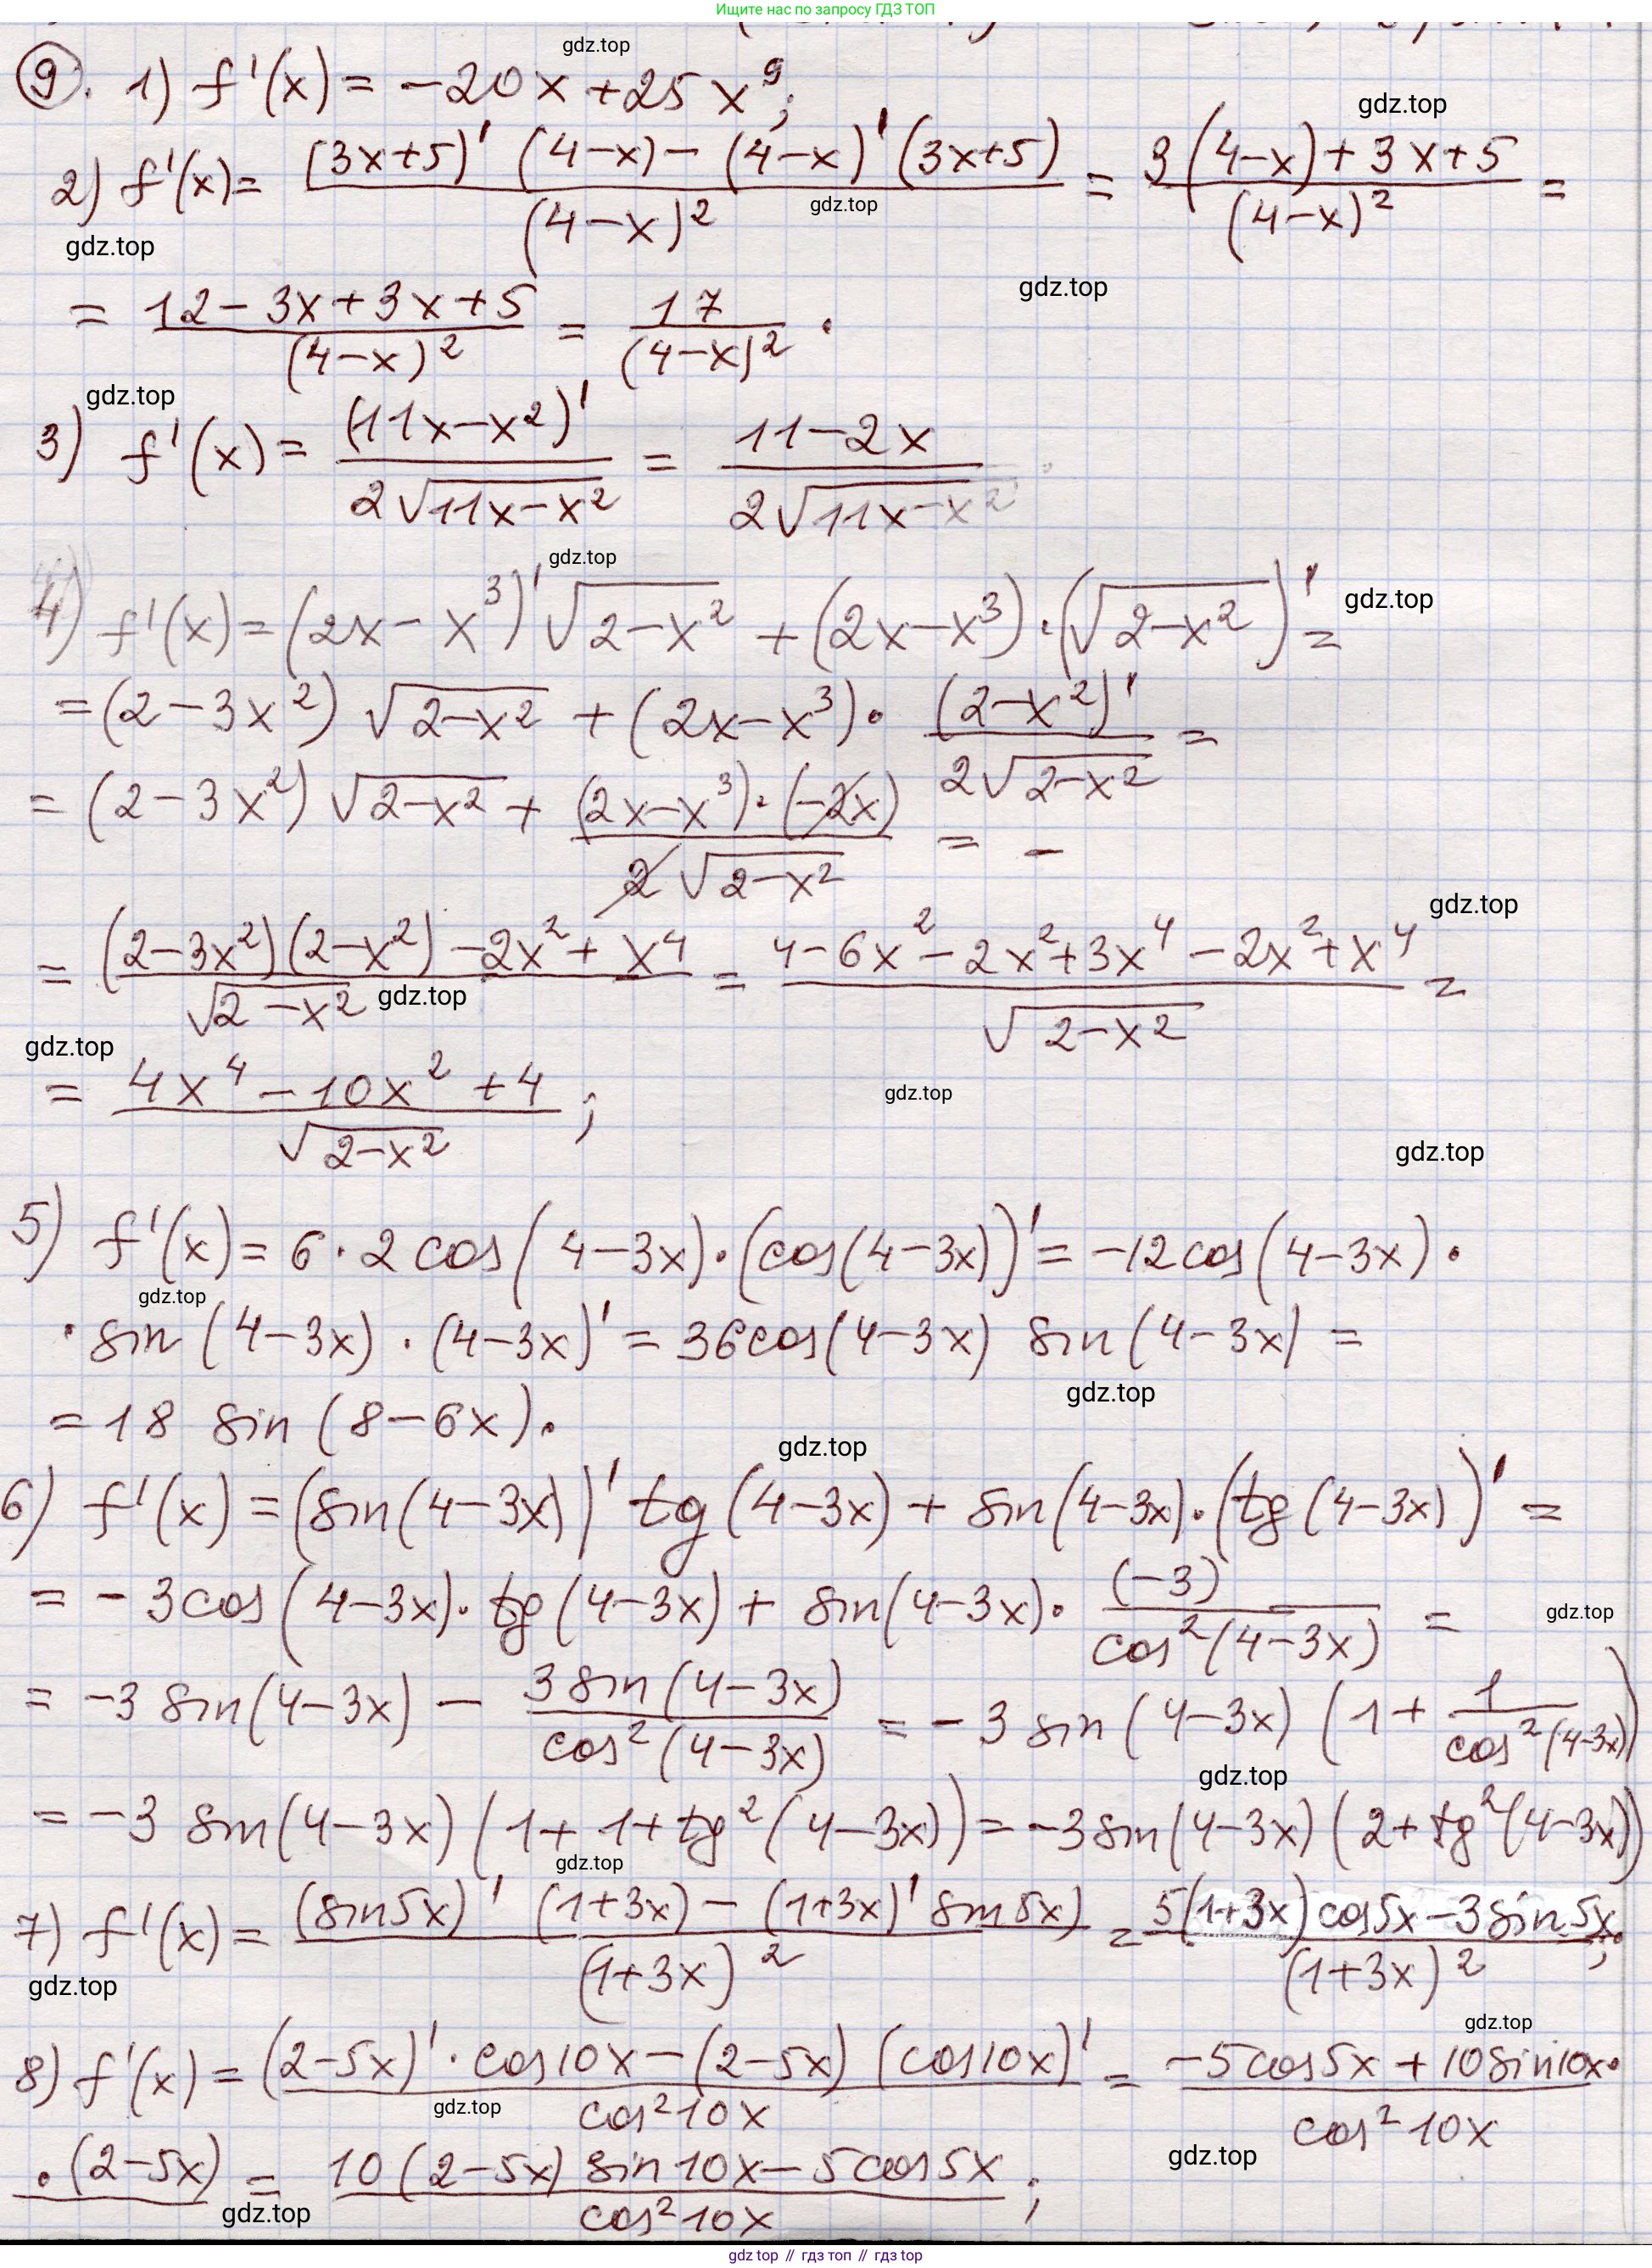 Ищите нас по запросу ГДЗ ТОП
gdz.top
9. 1) f'(x) = -20x + 25x^9;
gdz.top
2) f'(x) = ((3x+5)' (4-x) - (4-x)' (3x+5)) / (4-x)^2 = (3(4-x) + 3x+5) / (4-x)^2 =
gdz.top
gdz.top
= (12 - 3x + 3x + 5) / (4-x)^2 = 17 / (4-x)^2 .
gdz.top
gdz.top
3) f'(x) = (11x-x^2)' / (2√(11x-x^2)) = (11-2x) / (2√(11x-x^2))
gdz.top
4) f'(x) = (2x - x^3)' √(2-x^2) + (2x-x^3) · (√(2-x^2))' =
gdz.top
= (2-3x^2) √(2-x^2) + (2x-x^3) · (2-x^2)' / (2√(2-x^2)) =
= (2-3x^2) √(2-x^2) + (2x-x^3) · (-2x) / (2√(2-x^2)) = -
gdz.top
= ((2-3x^2)(2-x^2) - 2x^2 + x^4) / √(2-x^2) = (4-6x^2-2x^2+3x^4-2x^2+x^4) / √(2-x^2) =
gdz.top
gdz.top
= (4x^4 - 10x^2 + 4) / √(2-x^2) ;
gdz.top
gdz.top
5) f'(x) = 6 · 2 cos(4-3x) · (cos(4-3x))' = -12 cos(4-3x) ·
gdz.top
· sin(4-3x) · (4-3x)' = 36 cos(4-3x) sin(4-3x) =
gdz.top
= 18 sin(8-6x).
gdz.top
6) f'(x) = (sin(4-3x))' tg(4-3x) + sin(4-3x) · (tg(4-3x))' =
= -3 cos(4-3x) · tg(4-3x) + sin(4-3x) · (-3) / cos^2(4-3x) =
gdz.top
= -3 sin(4-3x) - 3 sin(4-3x) / cos^2(4-3x) = -3 sin(4-3x) (1 + 1 / cos^2(4-3x))
gdz.top
= -3 sin(4-3x) (1+1+tg^2(4-3x)) = -3 sin(4-3x) (2+tg^2(4-3x))
gdz.top
7) f'(x) = ((sin5x)' (1+3x) - (1+3x)' sin5x) / (1+3x)^2 = (5(1+3x) cos5x - 3 sin5x) / (1+3x)^2 ;
gdz.top
gdz.top
8) f'(x) = ((2-5x)' · cos10x - (2-5x) (cos10x)') / cos^2 10x = (-5cos5x + 10sin10x· / cos^2 10x
gdz.top
·(2-5x)) = (10(2-5x) sin10x - 5cos5x) / cos^2 10x ;
gdz.top
gdz.top
gdz top // гдз топ // гдз top